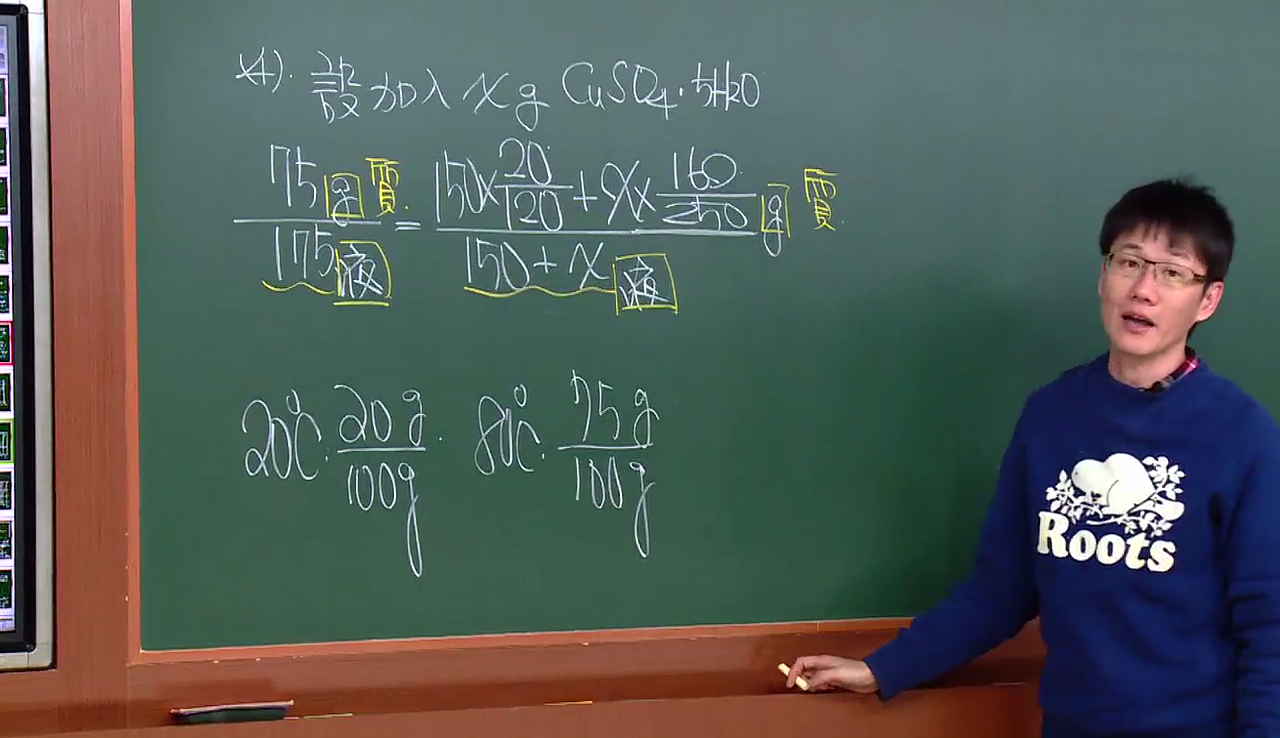 (4). 設加入 x g CuSO4·5H2O
75g 質 / 175 液 = (150×20/120 + x×160/250) g 質 / (150+x) 液
20℃. 20g/100g. 80℃. 75g/100g
Roots